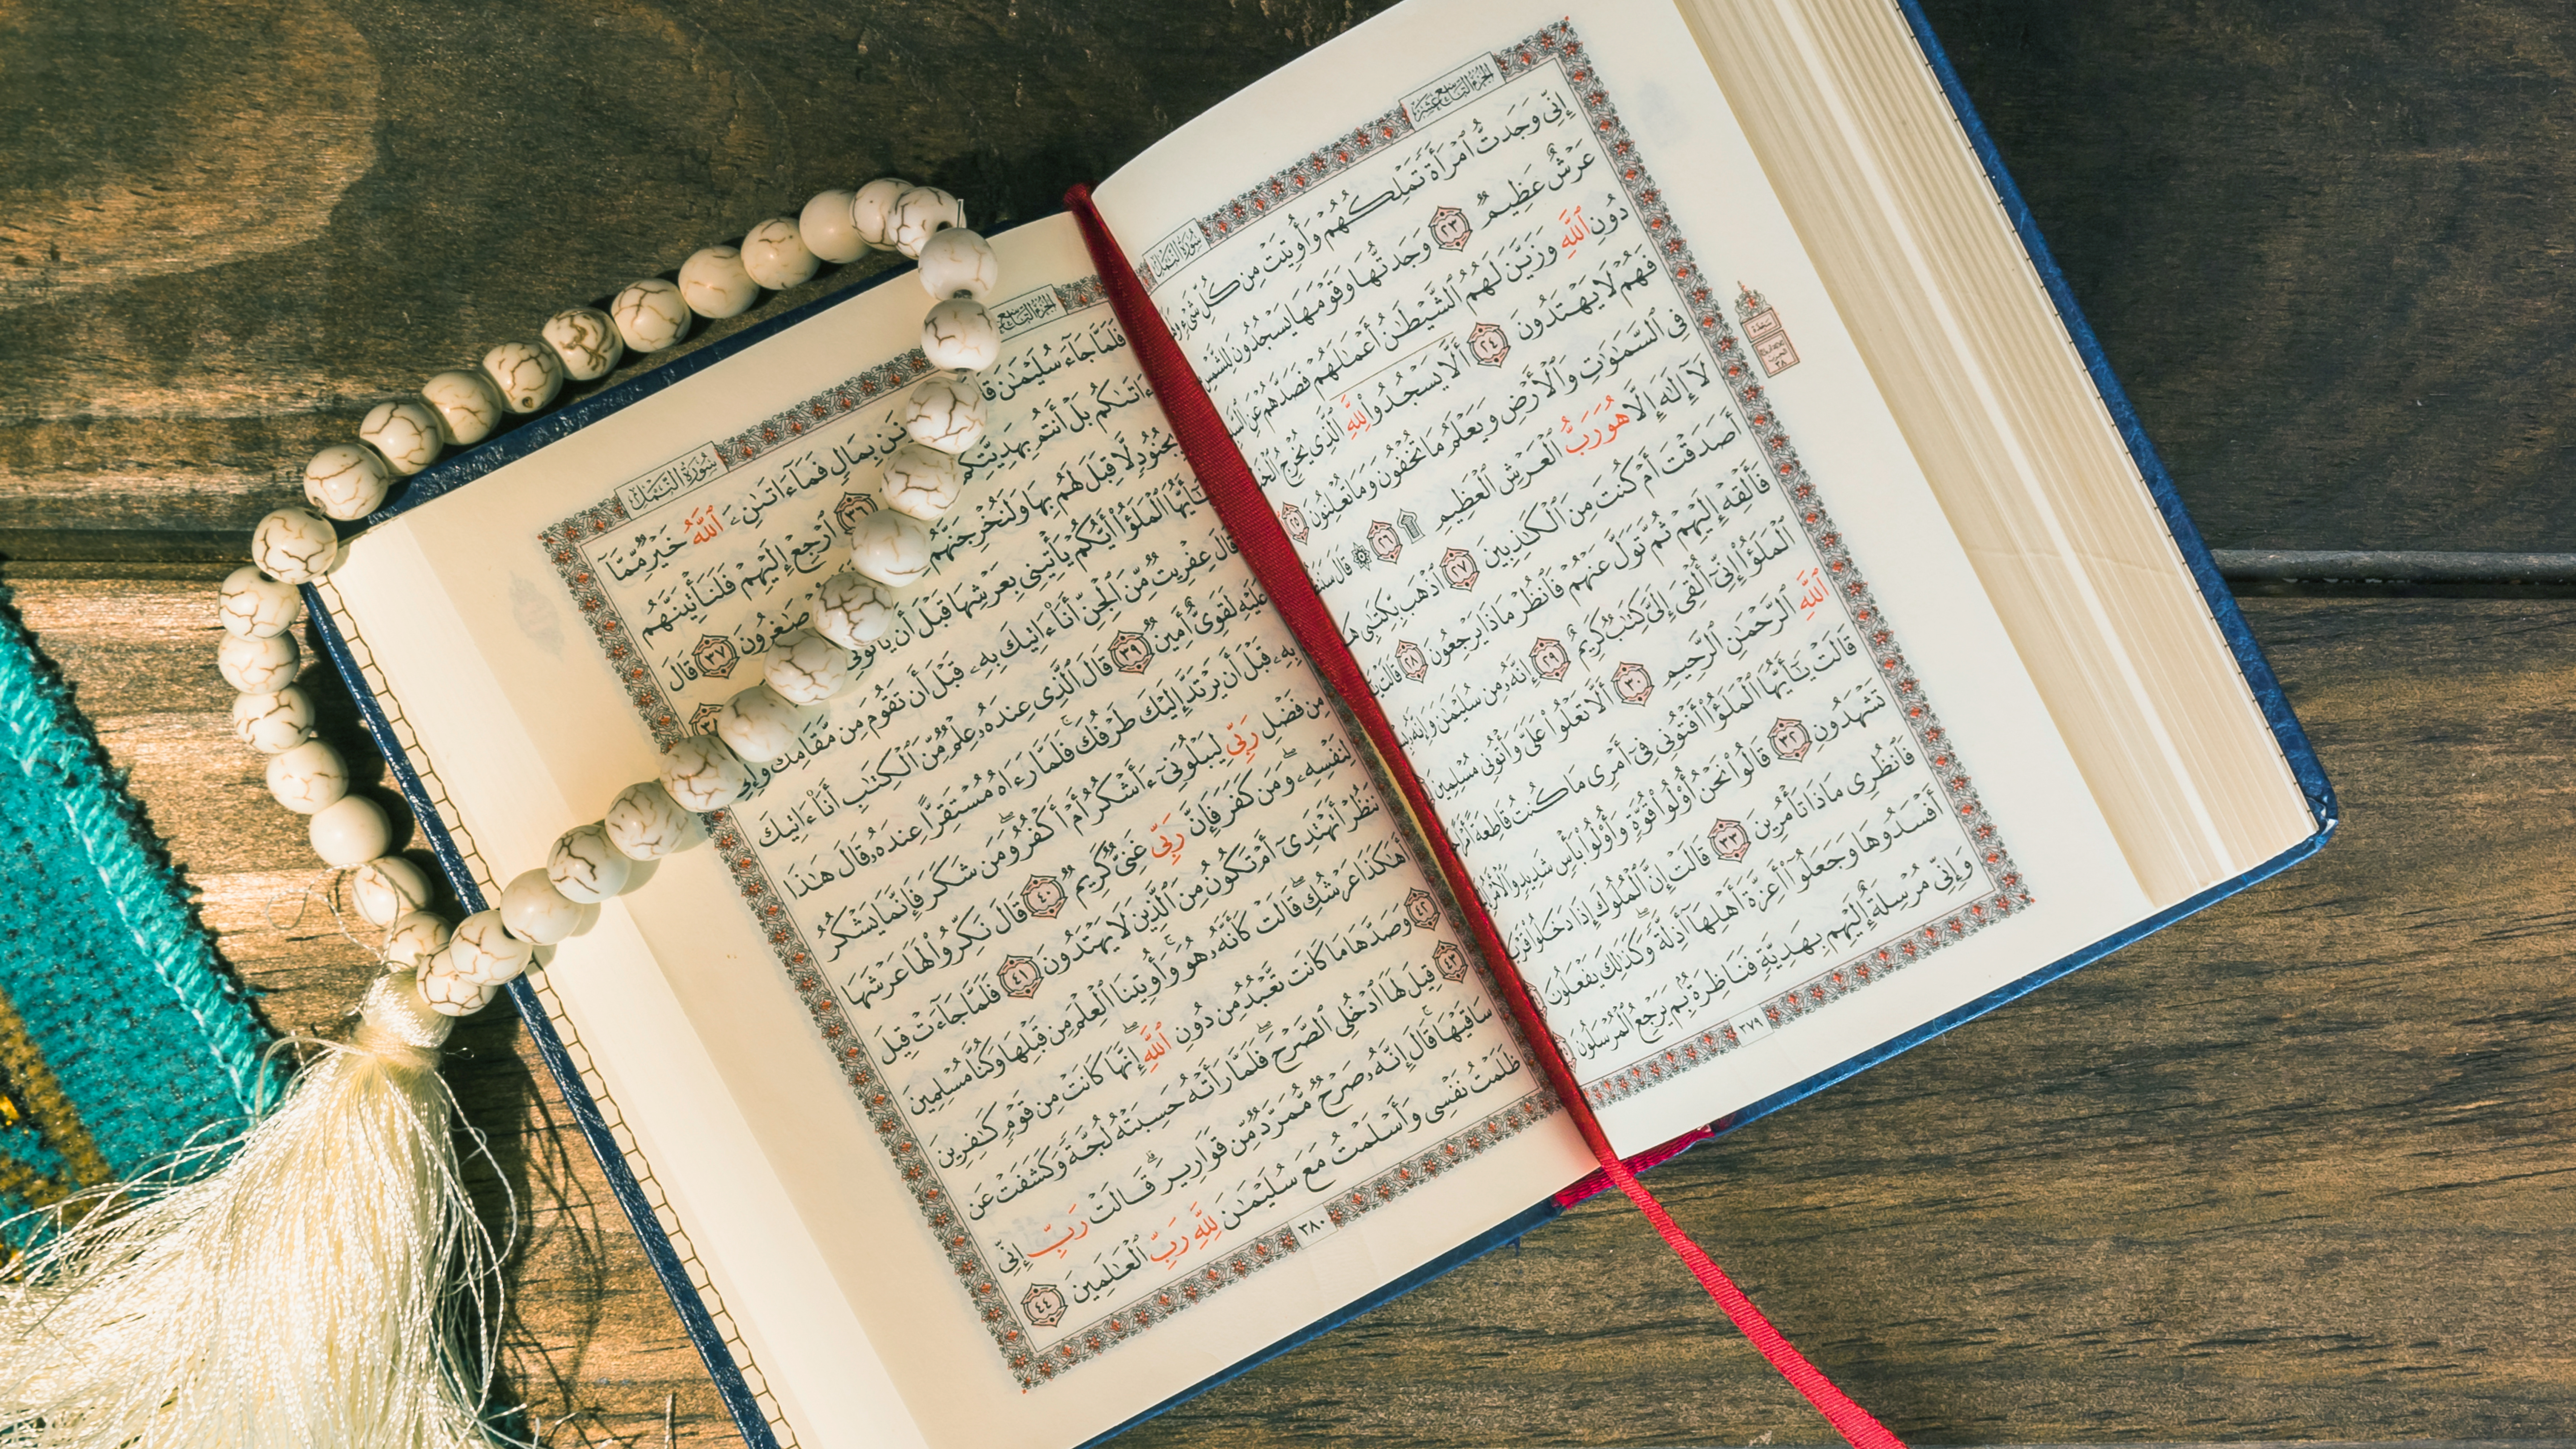 الجُزْءُ التَّاسِعَ عَشَرَ
سُورَةُ النَّمْلِ
إِنِّى وَجَدتُّ ٱمْرَأَةً تَمْلِكُهُمْ وَأُوتِيَتْ مِن كُلِّ شَىْءٍ
عَرْشٌ عَظِيمٌ ٢٣ وَجَدتُّهَا وَقَوْمَهَا يَسْجُدُونَ لِلشَّمْسِ
دُونِ ٱللَّهِ وَزَيَّنَ لَهُمُ ٱلشَّيْطَٰنُ أَعْمَٰلَهُمْ فَصَدَّهُمْ عَنِ
فَهُمْ لَا يَهْتَدُونَ ٢٤ أَلَّا يَسْجُدُوا۟ لِلَّهِ ٱلَّذِى يُخْرِجُ
فِى ٱلسَّمَٰوَٰتِ وَٱلْأَرْضِ وَيَعْلَمُ مَا تُخْفُونَ وَمَا تُعْلِنُونَ ٢٥
لَآ إِلَٰهَ إِلَّا هُوَ رَبُّ ٱلْعَرْشِ ٱلْعَظِيمِ ۩ ٢٦ ۞ قَالَ
أَصَدَقْتَ أَمْ كُنتَ مِنَ ٱلْكَٰذِبِينَ ٢٧ ٱذْهَب بِّكِتَٰبِى
فَأَلْقِهْ إِلَيْهِمْ ثُمَّ تَوَلَّ عَنْهُمْ فَٱنظُرْ مَاذَا يَرْجِعُونَ ٢٨ قَالَتْ
ٱلْمَلَؤُا۟ إِنِّىٓ أُلْقِىَ إِلَىَّ كِتَٰبٌ كَرِيمٌ ٢٩ إِنَّهُۥ مِن سُلَيْمَٰنَ وَإِنَّهُۥ
ٱللَّهِ ٱلرَّحْمَٰنِ ٱلرَّحِيمِ ٣٠ أَلَّا تَعْلُوا۟ عَلَىَّ وَأْتُونِى مُسْلِمِينَ
قَالَتْ يَٰٓأَيُّهَا ٱلْمَلَؤُا۟ أَفْتُونِى فِىٓ أَمْرِى مَا كُنتُ قَاطِعَةً
تَشْهَدُونِ ٣٢ قَالُوا۟ نَحْنُ أُو۟لُوا۟ قُوَّةٍ وَأُو۟لُوا۟ بَأْسٍ شَدِيدٍ وَٱلْأَمْرُ
فَٱنظُرِى مَاذَا تَأْمُرِينَ ٣٣ قَالَتْ إِنَّ ٱلْمُلُوكَ إِذَا دَخَلُوا۟ قَرْيَةً
أَفْسَدُوهَا وَجَعَلُوٓا۟ أَعِزَّةَ أَهْلِهَآ أَذِلَّةً ۖ وَكَذَٰلِكَ يَفْعَلُونَ
وَإِنِّى مُرْسِلَةٌ إِلَيْهِم بِهَدِيَّةٍ فَنَاظِرَةٌۢ بِمَ يَرْجِعُ ٱلْمُرْسَلُونَ
٣٧٩
الجُزْءُ التَّاسِعَ
سُورَةُ النَّمْلِ
فَلَمَّا جَآءَ سُلَيْمَٰنَ بِمَالٍ فَمَآ ءَاتَىٰنِۦَ ٱللَّهُ خَيْرٌ مِّمَّآ
ءَاتَىٰكُم بَلْ أَنتُم بِهَدِيَّتِكُمْ ٣٦ ٱرْجِعْ إِلَيْهِمْ فَلَنَأْتِيَنَّهُم
بِجُنُودٍ لَّا قِبَلَ لَهُم بِهَا وَلَنُخْرِجَنَّهُم صَٰغِرُونَ ٣٧ قَالَ
يَٰٓأَيُّهَا ٱلْمَلَؤُا۟ أَيُّكُمْ يَأْتِينِى بِعَرْشِهَا قَبْلَ أَن
قَالَ عِفْرِيتٌ مِّنَ ٱلْجِنِّ أَنَا۠ ءَاتِيكَ بِهِۦ قَبْلَ أَن تَقُومَ مِن مَّقَامِكَ
عَلَيْهِ لَقَوِىٌّ أَمِينٌ ٣٩ قَالَ ٱلَّذِى عِندَهُۥ عِلْمٌ مِّنَ ٱلْكِتَٰبِ أَنَا۠ ءَاتِيكَ
بِهِۦ قَبْلَ أَن يَرْتَدَّ إِلَيْكَ طَرْفُكَ ۚ فَلَمَّا رَءَاهُ مُسْتَقِرًّا عِندَهُۥ قَالَ هَٰذَا
مِن فَضْلِ رَبِّى لِيَبْلُوَنِىٓ ءَأَشْكُرُ أَمْ أَكْفُرُ ۖ وَمَن شَكَرَ فَإِنَّمَا يَشْكُرُ
لِنَفْسِهِۦ ۖ وَمَن كَفَرَ فَإِنَّ رَبِّى غَنِىٌّ كَرِيمٌ ٤٠ قَالَ نَكِّرُوا۟ لَهَا عَرْشَهَا
نَنظُرْ أَتَهْتَدِىٓ أَمْ تَكُونُ مِنَ ٱلَّذِينَ لَا يَهْتَدُونَ ٤١ فَلَمَّا جَآءَتْ قِيلَ
أَهَٰكَذَا عَرْشُكِ ۖ قَالَتْ كَأَنَّهُۥ هُوَ ۚ وَأُوتِينَا ٱلْعِلْمَ مِن قَبْلِهَا وَكُنَّا مُسْلِمِينَ
٤٢ وَصَدَّهَا مَا كَانَت تَّعْبُدُ مِن دُونِ ٱللَّهِ ۖ إِنَّهَا كَانَتْ مِن قَوْمٍ كَٰفِرِينَ
٤٣ قِيلَ لَهَا ٱدْخُلِى ٱلصَّرْحَ ۖ فَلَمَّا رَأَتْهُ حَسِبَتْهُ لُجَّةً وَكَشَفَتْ عَن
سَاقَيْهَا ۚ قَالَ إِنَّهُۥ صَرْحٌ مُّمَرَّدٌ مِّن قَوَارِيرَ ۗ قَالَتْ رَبِّ إِنِّى
ظَلَمْتُ نَفْسِى وَأَسْلَمْتُ مَعَ سُلَيْمَٰنَ لِلَّهِ رَبِّ ٱلْعَٰلَمِينَ ٤٤
٣٨٠